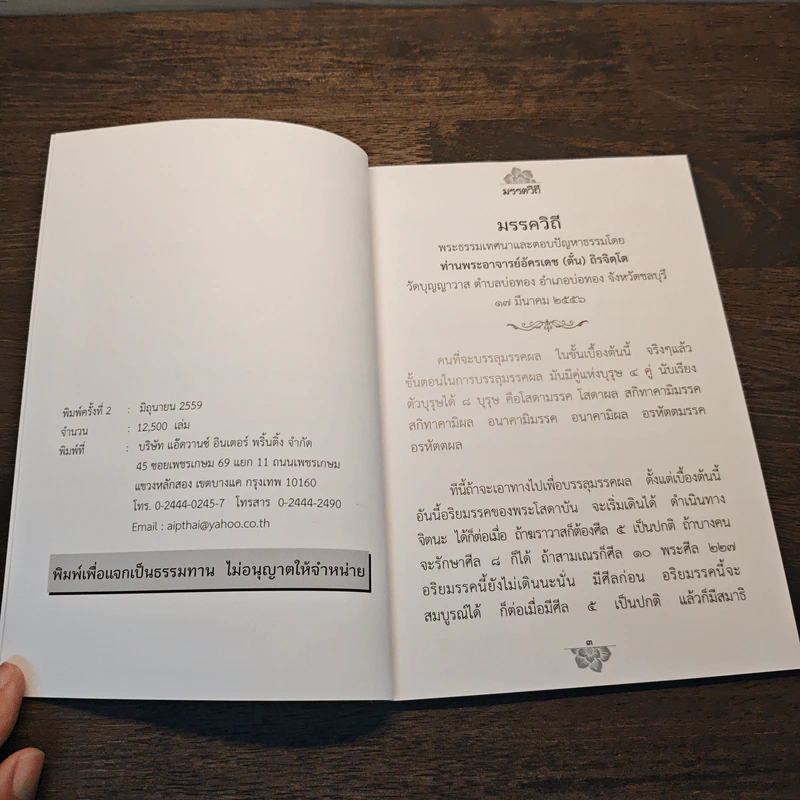 พิมพ์ครั้งที่ 2 : มิถุนายน 2559
จำนวน : 12,500 เล่ม
พิมพ์ที่ : บริษัท แอ๊ดวานซ์ อินเตอร์ พริ้นติ้ง จำกัด
45 ซอยเพชรเกษม 69 แยก 11 ถนนเพชรเกษม
แขวงหลักสอง เขตบางแค กรุงเทพ 10160
โทร. 0-2444-0245-7 โทรสาร 0-2444-2490
Email : aipthai@yahoo.co.th
พิมพ์เพื่อแจกเป็นธรรมทาน ไม่อนุญาตให้จำหน่าย
มรรควิถี
มรรควิถี
พระธรรมเทศนาและตอบปัญหาธรรมโดย
ท่านพระอาจารย์อัครเดช (ตั๋น) ถิรจิตฺโต
วัดบุญญาวาส ตำบลบ่อทอง อำเภอบ่อทอง จังหวัดชลบุรี
๑๗ มีนาคม ๒๕๕๖
คนที่จะบรรลุมรรคผล ในขั้นเบื้องต้นนี้ จริงๆแล้ว
ขั้นตอนในการบรรลุมรรคผล มันมีคู่แห่งบุรุษ ๔ คู่ นับเรียง
ตัวบุรุษได้ ๘ บุรุษ คือโสดามรรค โสดาผล สกิทาคามิมรรค
สกิทาคามิผล อนาคามิมรรค อนาคามิผล อรหัตตมรรค
อรหัตตผล
ทีนี้ถ้าจะเอาทางไปเพื่อบรรลุมรรคผล ตั้งแต่เบื้องต้นนี้
อันนี้อริยมรรคของพระโสดาบัน จะเริ่มเดินได้ ดำเนินทาง
จิตนะ ได้ก็ต่อเมื่อ ถ้าฆราวาสก็ต้องศีล ๕ เป็นปกติ ถ้าบางคน
จะรักษาศีล ๘ ก็ได้ ถ้าสามเณรก็ศีล ๑๐ พระศีล ๒๒๗
อริยมรรคนี้ยังไม่เดินนะนั่น มีศีลก่อน อริยมรรคนี้จะ
สมบูรณ์ได้ ก็ต่อเมื่อมีศีล ๕ เป็นปกติ แล้วก็มีสมาธิ
๓